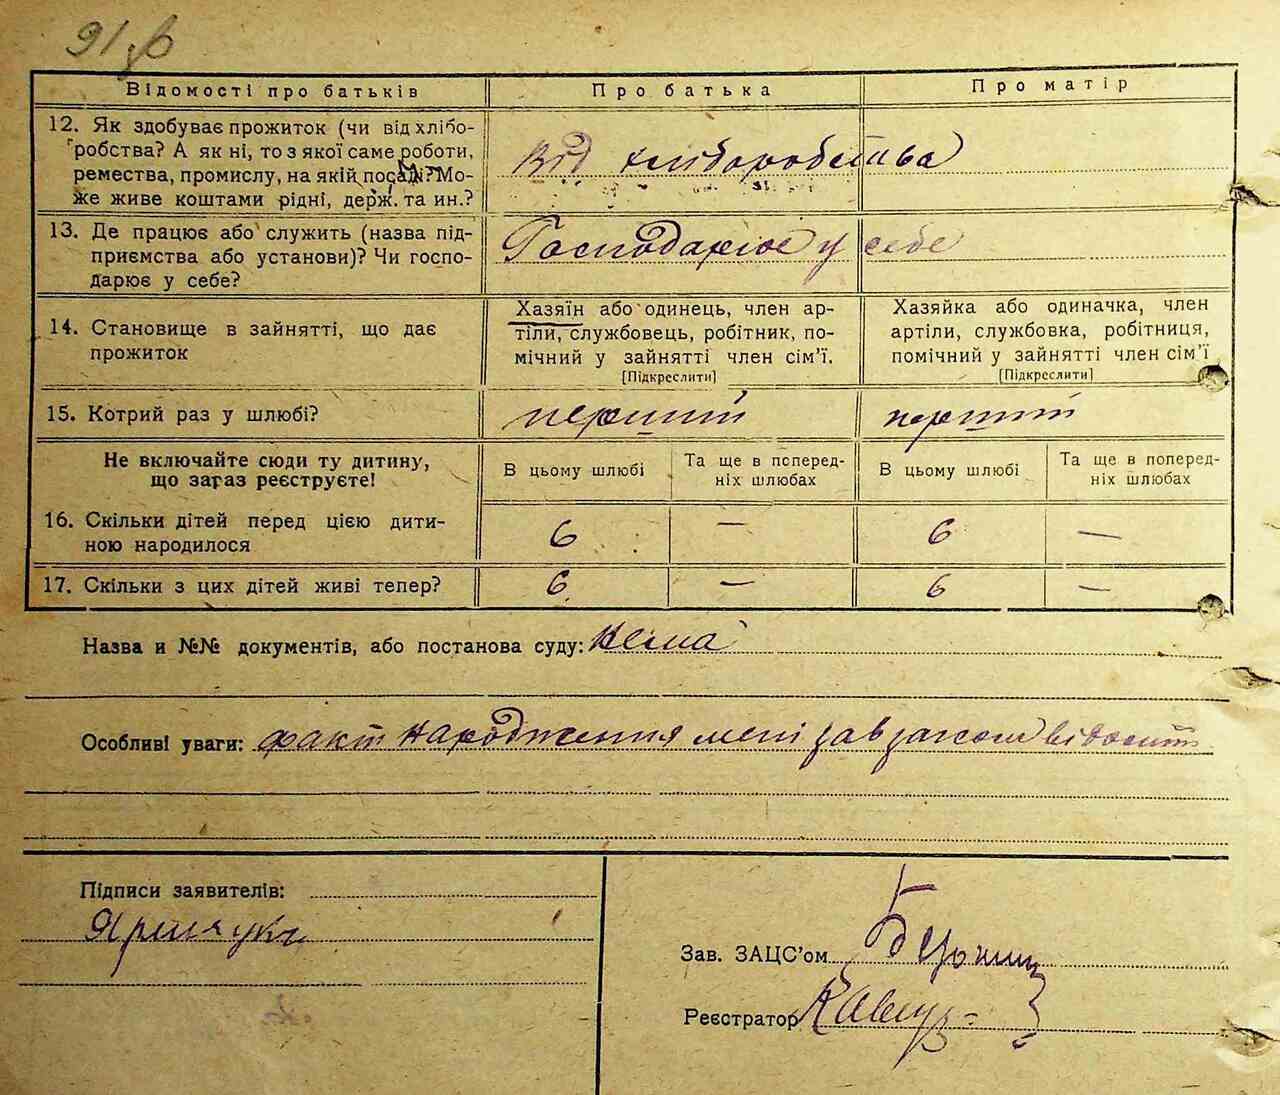 91
Відомості про батьків Про батька Про матір
12. Як здобуває прожиток (чи від хлібо-
робства? А як ні, то з якої саме роботи,
ремества, промислу, на якій посаді? Мо-
же живе коштами рідні, держ. та ин.?
Від хліборобства
13. Де працює або служить (назва під-
приємства або установи)? Чи госпо-
дарює у себе?
Господарює у себе
14. Становище в зайнятті, що дає
прожиток
Хазяїн або одинець, член ар-
тіли, службовець, робітник, по-
мічний у зайнятті член сім'ї.
[Підкреслити]
Хазяйка або одиначка, член
артіли, службовка, робітниця,
помічний у зайнятті член сім'ї
[Підкреслити]
15. Котрий раз у шлюбі? перший перший
Не включайте сюди ту дитину,
що зараз реєструєте!
В цьому шлюбі
Та ще в поперед-
ніх шлюбах
В цьому шлюбі
Та ще в поперед-
ніх шлюбах
16. Скільки дітей перед цією дити-
ною народилося
6 — 6 —
17. Скільки з цих дітей живі тепер? 6 — 6 —
Назва и №№ документів, або постанова суду: Нема
Особливі уваги: факт народження мені зав загсом
Підписи заявителів:
Зав. ЗАЦС'ом
Реєстратор